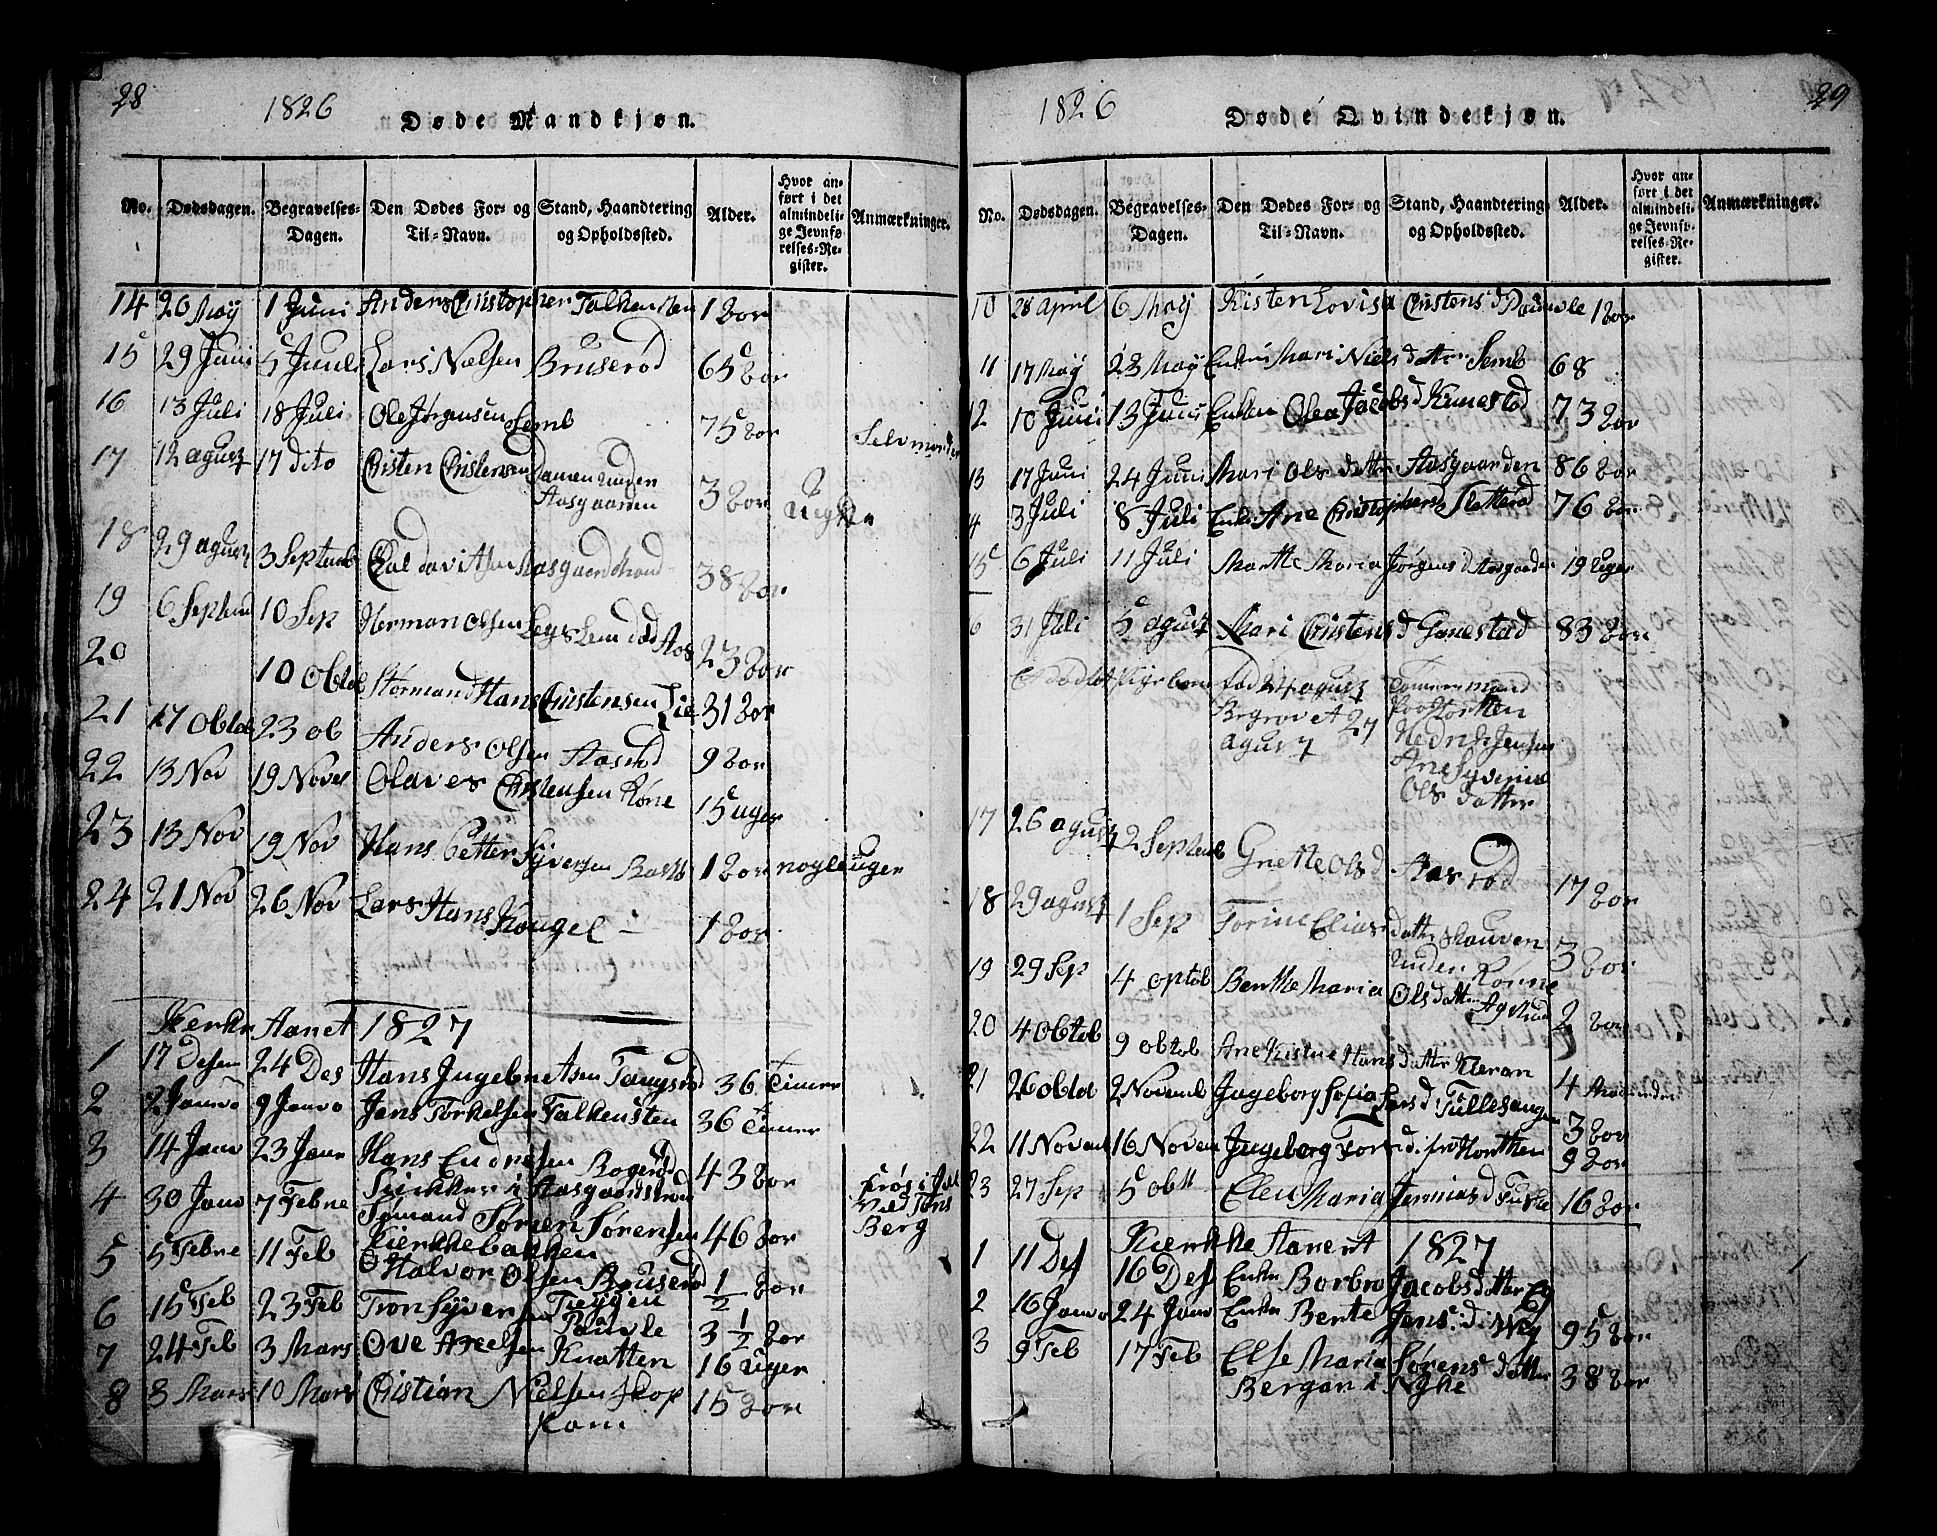 28
1826
Døde Mandkjøn.
No. Dødsdagen. Begravelses-Dagen. Den Dødes For- og Til-Navn. Stand, Haandtering og Opholdssted. Alder. Hvor anført i det almindelige Jevnførelses-Register. Anmærkninger.
14 26 Maÿ 1 Juni Anders Christopher Falkensten 1 Aar
15 29 Juni 5 Juuli Lars Nielsen Bruserød 65 Aar
16 13 Juli 18 Juli Ole Jørgensen Semb 75 Aar Selvmorder
17 12 agust 17 dito Cristen Cristensen Damen unden Aasgaarden 3 Aar
18 29 agust 3 Septemb Davitsen Aasgaardstrand 38 Aar
19 6 Septemb 10 Sep Herman Olsen 23 Aar
20 10 Obtob Stÿrmand Hans Cristensen Lie 31 Aar
21 17 Obtob 23 ob Anders Olsen Aasrød 9 Aar
22 13 Nov 19 Novem Olaves Cristensen Røne 15 uger
23 13 Nov 19 Nov Hans Petter Syversen 1 Aar nogle uger
24 21 Nov 26 Nov Lars Hans Kougel 1 Aar
Kerke Aaret 1827
1 17 Desem 24 Des Hans Ingebretsen Taugsrød 36 Timer
2 2 Janva 9 Janva Jens Torkelsen Falkensten 36 Timer
3 14 Janv 23 Janv Hans Endresen Bogerød 43 Aar
4 30 Janv 7 Febre Tømand Søren Sørensen 46 Aar
Berg
5 5 Febre 11 Feb Halvor Olsen Bruserød 1/2 Aar
6 15 Feb 23 Feb Tron Syversen 3 1/2 Aar
7 24 Feb 3 Mars Ove Axelsen Knatten 16 Uger
8 3 Mars 10 Mars Cristian Nielsen Skop 15 Aar
29
1826
Døde Qvindekjøn.
No. Dødsdagen. Begravelses-Dagen. Den Dødes For- og Til-Navn. Stand, Haandtering og Opholdssted. Alder. Hvor anført i det almindelige Jevnførelses-Register. Anmærkninger.
10 28 April 6 Maÿ Kisten Lovisa Cristens d 1 Aar
11 17 Maÿ 23 Maÿ Enken Mari Niels datter Semb 68
12 10 Juni 13 Juni Enken Olea Jacobs d 73 Aar
13 17 Juni 24 Juni Mari Ols datter Aasgaarden 86 Aar
14 3 Juli 8 Juli Enke Ane Christophers d Sletterød 76 Aar
15 6 Juli 11 Juli Marthe Maria Jørgens d Aasgaarden 19 Uger
16 31 Juli 5 agust Mari Cristens d Gunestad 83 Aar
Et Dødfød Pigebarn Fød 24 agust Begravet 27 agust Tømermand paa Horten Jensen Ane Syverine Ols Datter
17 26 agust 2 Septemb Grette Ols d Aasrød 17 Aar
18 29 agust 1 Sep Torine Elias datter Skauven unden Rønne 3 Aar
19 29 Sep 4 optob Benthe Maria Ols datter 2 Aar
20 4 Obtob 9 obtob Ane Kistine Hans datter Kieran
21 26 obtob 2 Novemb Ingeborg Sofia Lars d 4 Maaneder
22 11 Novem 16 Novem Ingeborg Tors d paa Horthen 9 Aar
23 27 Sep 5 obtt Elen Maria Jermias d 16 Aar
Kierkke Aarent 1827
1 11 Des 16 Des Enke Borbro Jacobs datter Ey
2 16 Janva 24 Janv Enke Bente Jens d Weÿ 95 Aar
3 9 Feb 17 Feb Else Maria Sørens datter Bergan i Nÿhe 38 Aar